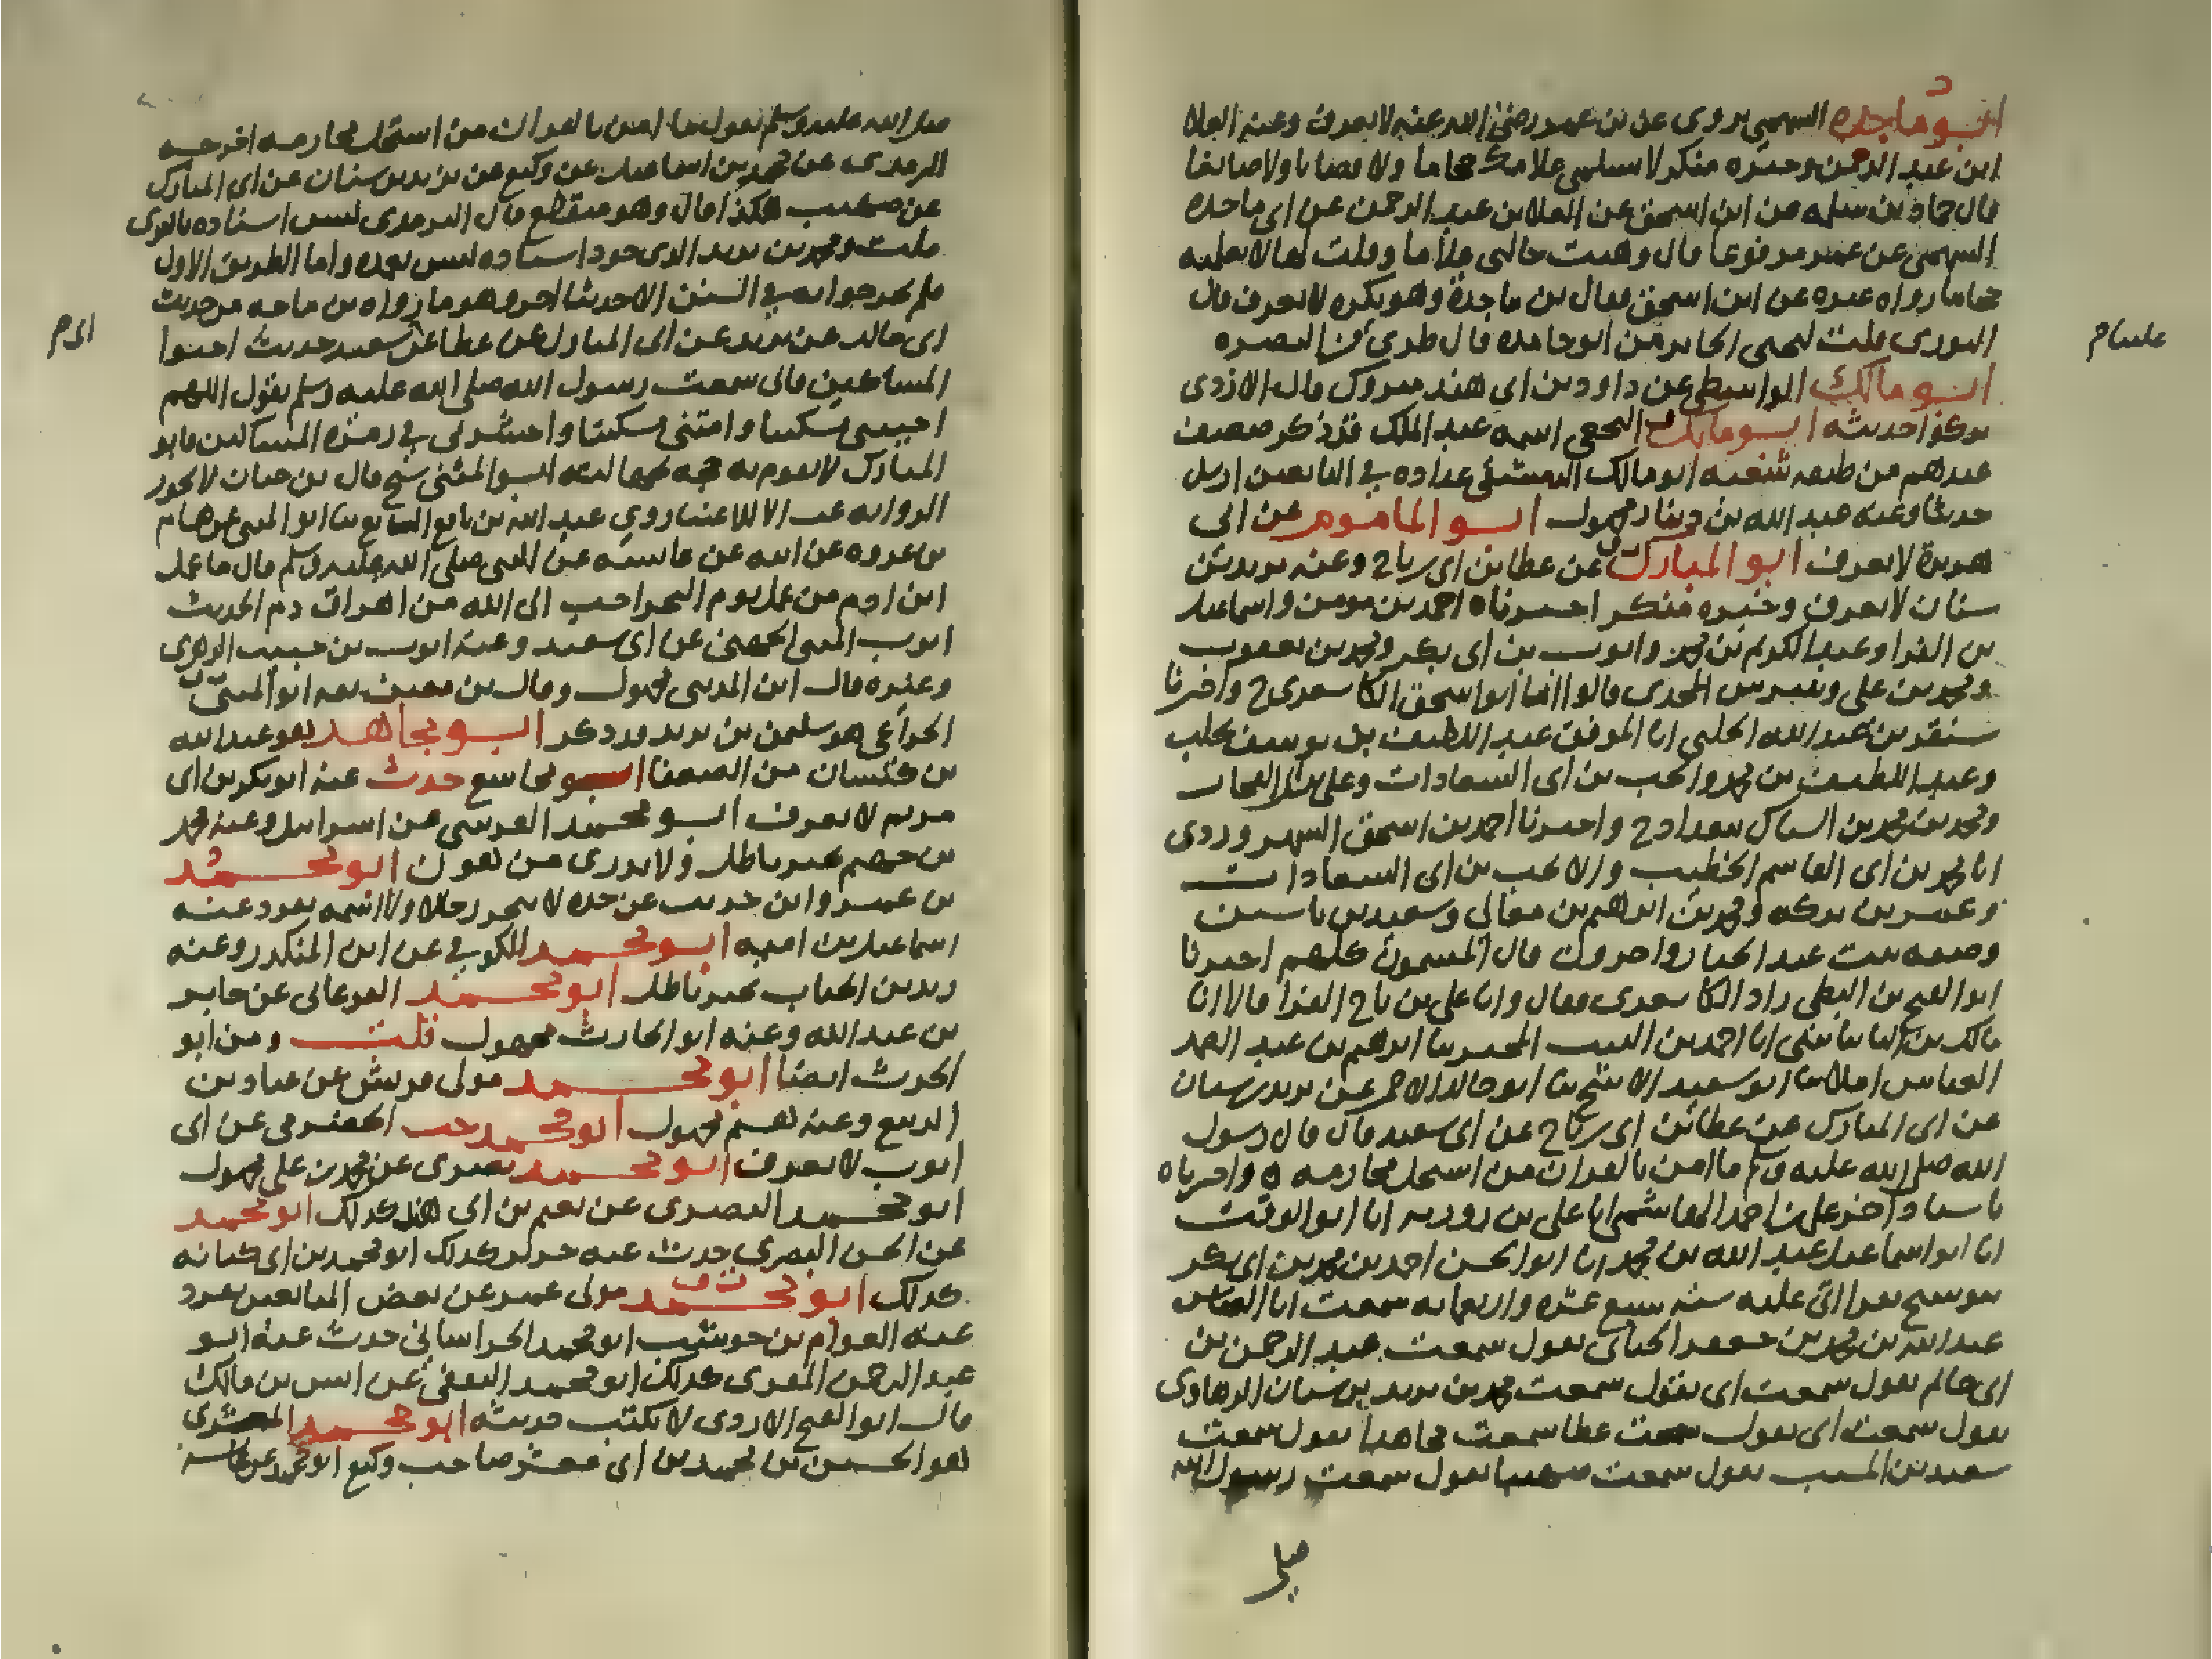 د
ابو ماجده السهمي يروي عن بن عمر رضي الله عنه لا يعرف وعنه العلا
ابن عبد الرحمن وخبره منكر لا سلمي غلامك حجاما ولا قصابا ولا صائغا
قال حماد بن سلمه عن ابن اسحق عن العلا بن عبد الرحمن عن ابي ماجده
السهمي عن عمر مرفوعا قال وهبت خالتي غلاما وقلت لها لا تجعليه
حجاما رواه غيره عن ابن اسحق فقال بن ماجدة وهو نكره لا يعرف قال
الثوري قلت ليحيى الجابر من ابو ماجده قال طرئ من البصره
ابو مالك الواسطي عن داود بن ابي هند متروك قال الازدي
تركوا حديثه ابو مالك النخعي اسمه عبد الملك قد ذكر ضعيف
عندهم من طبقه شعبه ابو مالك الدمشقي عداده في التابعين ارسل
حديثا وعنه عبد الله بن دينار مجهول ابو الماموم عن ابي
هريرة لا يعرف ابو المبارك عن عطا بن ابي رباح وعنه يزيد بن
سنان لا يعرف وخبره منكر اخبرناه احمد بن مومن واسماعيل
بن الفرا وعبد الكريم بن محمد وايوب بن ابي بكر ومحمد بن يعقوب
ومحمد بن علي وبيبرس المجدي قالوا انا ابو اسحق الكاشغري ح واخبرنا
سنقر بن عبد الله الحلبي انا الموفق عبد اللطيف بن يوسف بحلب
وعبد اللطيف بن محمد وانجب بن ابي السعادات وعلي
ومحمد بن محمد بن السباك ببغداد ح واخبرنا احمد بن اسحق السهروردي
انا محمد بن ابي القاسم الخطيب والانجب بن ابي السعادات
وعمر بن بركه ومحمد بن ابراهيم بن معالي وسعيد بن ياسين
وصفيه بنت عبد الجبار واخرون قال المسمون كلهم اخبرنا
ابو الفتح بن البطي زاد الكاشغري فقال وانا علي بن تاج القرا قالا انا
مالك بن البانياسي انا احمد بن الصلت المجبر نا ابراهيم بن عبد الصمد
العباس املا نا ابو سعيد الاشج نا ابو خالد الاحمر عن يزيد بن سنان
عن ابي المبارك عن عطا بن ابي رباح عن ابي سعيد قال قال رسول
الله صلى الله عليه وسلم ما امن بالقران من استحل محارمه ه واخبرناه
باسناد اخر علي بن احمد الهاشمي انا علي بن روزبه انا ابو الوقت
انا ابو اسماعيل عبد الله بن محمد انا ابو الحسن احمد بن محمد بن ابي بكر
بوسنج بقراتي عليه سنه سبع عشره واربعمايه سمعت ابا العباس
عبد الله بن محمد بن جعفر الجياني يقول سمعت عبد الرحمن بن
ابي حاتم يقول سمعت ابي يقول سمعت محمد بن يزيد بن سنان الرهاوي
يقول سمعت ابي يقول سمعت عطا سمعت مجاهدا يقول سمعت
سعيد بن المسيب يقول سمعت صهيبا يقول سمعت رسول الله
صلى
صلى الله عليه وسلم يقول ما امن بالقران من استحل محارمه اخرجه
الترمذي عن محمد بن اسماعيل عن وكيع عن يزيد بن سنان عن ابي المبارك
عن صهيب هكذا قال وهو منقطع قال الترمذي ليس اسناده بالقوي
قلت ومحمد بن يزيد الذي جود اسناده ليس بعمده واما الطريق الاول
فلم يخرجوا له في السنن الا حديثا اخر وهو ما رواه بن ماجه من حديث
ابي خالد عن يزيد عن ابي المبارك عن عطا عن سعيد حديث احبوا
المساكين فاني سمعت رسول الله صلى الله عليه وسلم يقول اللهم
احييني مسكينا وامتني مسكينا واحشرني في زمرة المساكين فابو
المبارك لا تقوم به حجه لجهالته ابو المثنى شيخ قال بن حبان لا يجوز
الروايه عنه الا للاعتبار روي عبد الله بن نافع الصايغ نا ابو المثنى عن هشام
بن عروه عن ابيه عن عايشه عن النبي صلى الله عليه وسلم قال ما عمل
ابن ادم من عمل يوم النحر احب الى الله من اهراق دم الحديث
ابوب المثنى الجهني عن ابي سعيد وعنه ايوب بن حبيب الزهري
وغيره قال ابن المديني مجهول وقال بن معين ثقه ابو المثنى
الخزاعي هو سليمن بن يزيد قد ذكر ابو مجاهد هو عبد الله
بن كيسان من الضعفا ابو مجاشع حدث عنه ابو بكر بن ابي
مريم لا يعرف ابو محمد القرشي عن اسراييل وعنه محمد
بن خصم خبر باطل ولا يدرى من يكون ابو محمد
بن عمرو ابن حريث عن جده لا يتحرر حالا ولا اسمه تفرد عنه
اسماعيل بن اميه ابو محمد الكوفي عن ابن المنكدر وعنه
زيد بن الحباب بخبر باطل ابو محمد القرعاني عن جابر
بن عبد الله وعنه ابو الحارث مجهول قلت ومن ابو
الحرث ايضا ابو محمد مولى قريش عن عباد بن
الربيع وعنه هشيم مجهول ابو محمد الحضرمي عن ابي
ايوب لا يعرف ابو محمد بصرى عن محمد بن علي مجهول
ابو محمد البصرى عن نعيم بن ابي هند كذلك ابو محمد
عن الحسن البصري حدث عنه جرير كذلك ابو محمد بن ابي كنانه
كذلك ابو محمد مولى عمر عن بعض التابعين تفرد
عنه العوام بن حوشب ابو محمد الخراساني حدث عنه ابو
عبد الرحمن المقرى كذلك ابو محمد الثقفي عن انس بن مالك
قال ابو الفتح الازدي لا يكتب حديثه ابو محمد المعشري
هو الحسين بن محمد بن ابي معشر صاحب وكيع ابو محمد عن عائشه